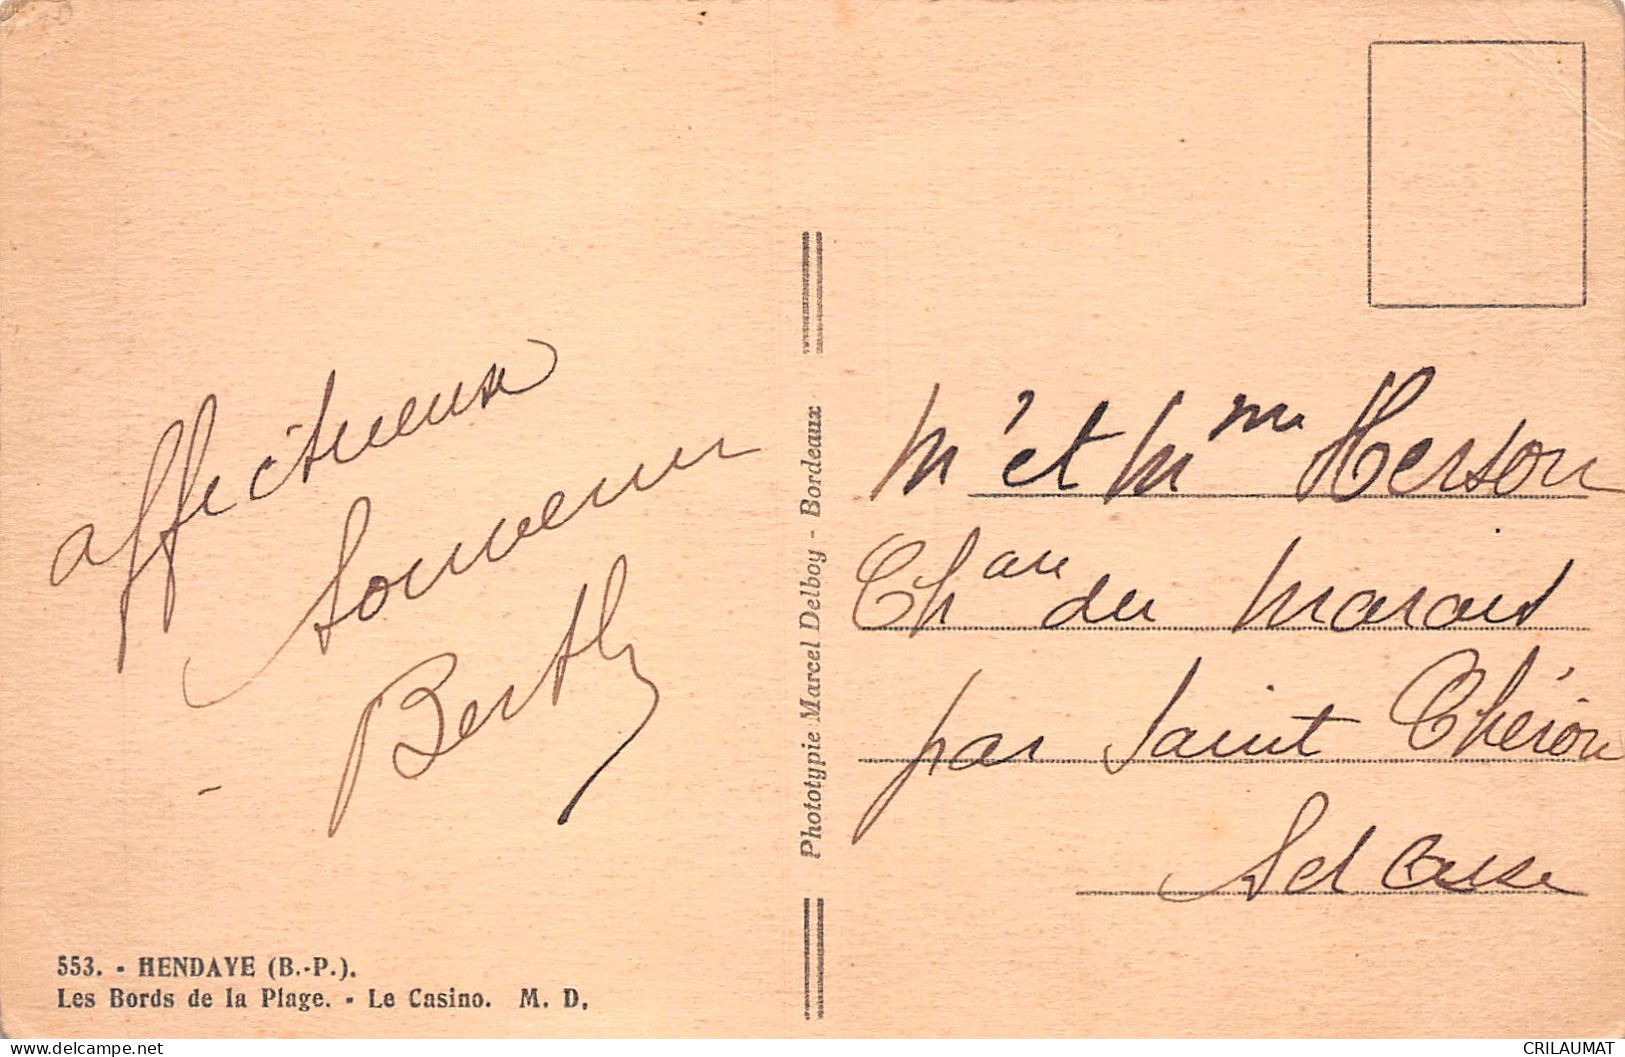 affectueux
Souvenir
Berthy
553. - HENDAYE (B.-P.).
Les Bords de la Plage. - Le Casino. M. D.
Phototypie Marcel Delboy - Bordeaux
Mr et Mme Herson
Chau du Marais
par Saint Chéron
Set Oise
delcampe.net
CRILAUMAT